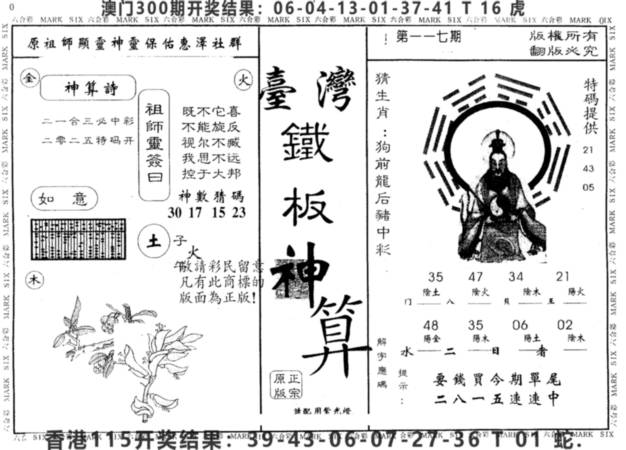 澳门300期开奖结果：06-04-13-01-37-41 T 16 虎
原祖師顯靈神靈保佑惠澤社群
金
神算詩
火
二一合三必中彩
二零二五特碼开
祖師靈簽曰
既不它喜
不能旋反
视尔不臧
我思不远
控于大邦
神數猜碼
30 17 15 23
如意
土
子
火
午
敬請彩民留意
凡有此商標的
版面為正版!
木
臺灣
鐵板神算
正宗原版
验配用紫光燈
第一一七期
版權所有
翻版必究
猜生肖：狗前龍后豬中彩
特碼提供
21
43
05
35 47 34 21
陰土 陰火 陰木 陽火
門 八 見 王
48 35 06 02
陽金 陽木 陽土 陰木
水 二 日 者
解字應碼
提示：
要錢買今期單尾
二八一五連連中
香港115开奖结果：39-43-06-07-27-36 T 01 蛇.